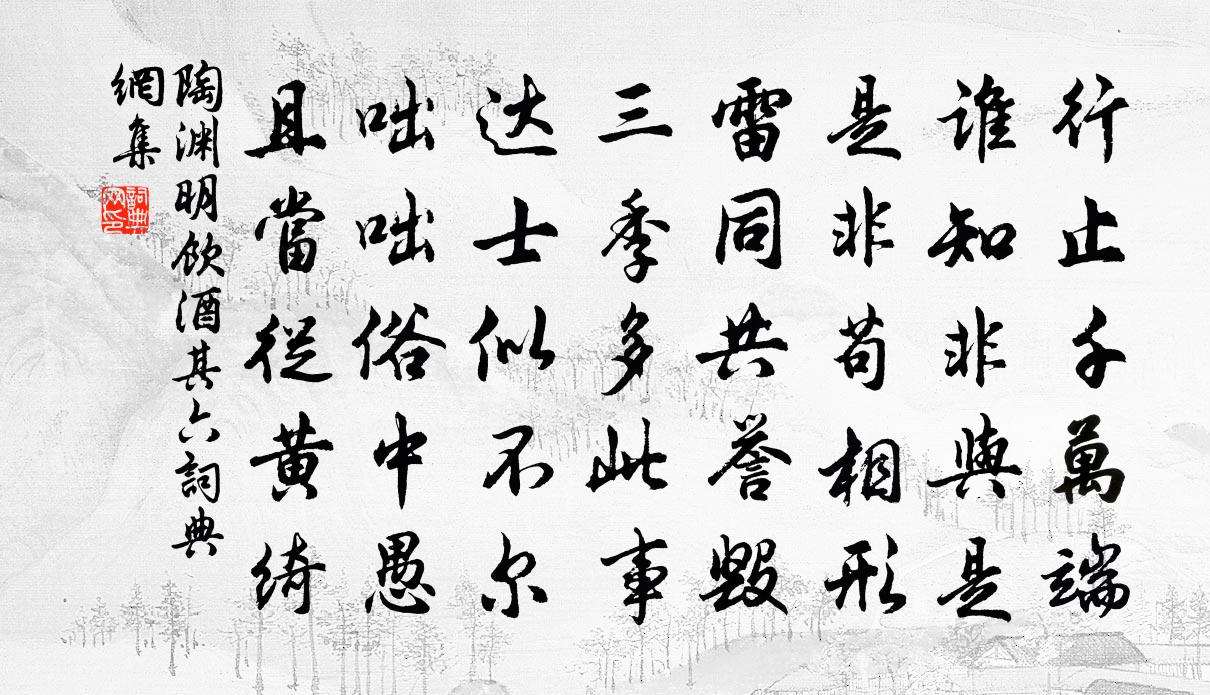 行止千萬端
誰知非與是
是非苟相形
雷同共譽毀
三季多此事
达士似不尔
咄咄俗中愚
且當從黄綺
陶渊明飲酒其六詞典
網集
詞典
网印